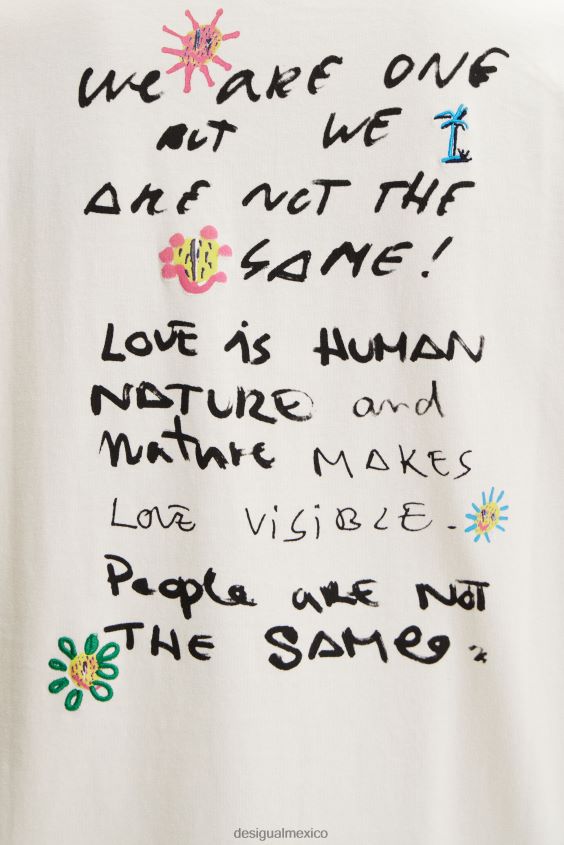 We ARE ONE
BUT WE
ARE NOT THE
SAME!
LOVE is HUMAN
NATURE and
Nature MAKES
LOVE ViSiBLE.
People ARE NOT
THE SAMe.
desigualmexico